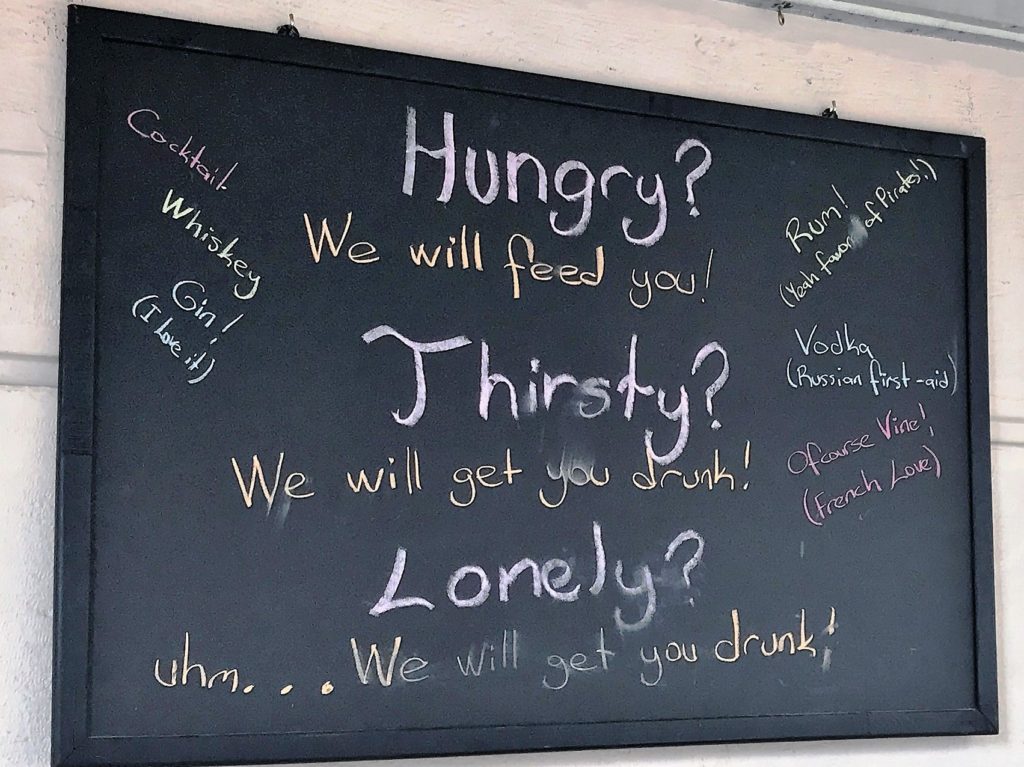 Hungry?
We will feed you!
Thirsty?
We will get you drunk!
Lonely?
uhm. . . . We will get you drunk!
Cocktail
Whiskey
Gin!
(I Love it)
Rum!
(Yeah of Pirates!)
Vodka
(Russian first-aid)
Ofcourse Vine!
(French Love)